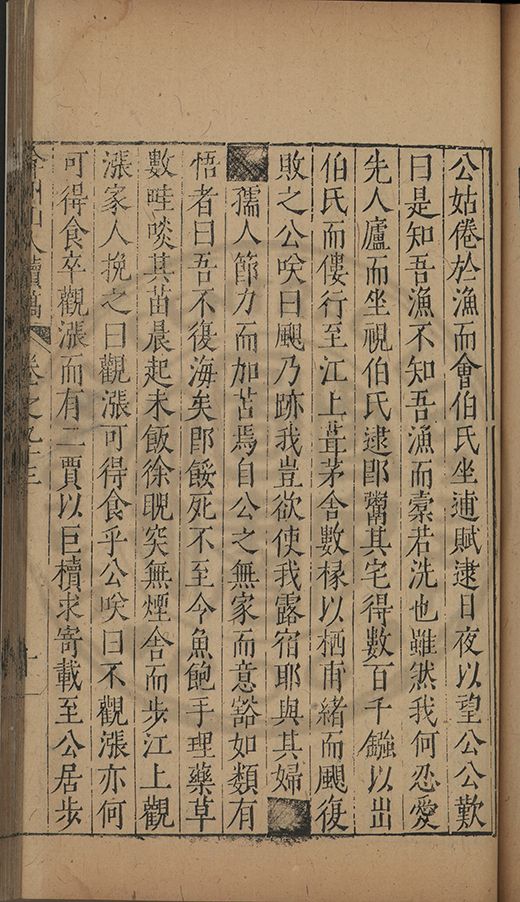 公姑倦於漁而會伯氏坐逋賦逮日夜以望公公歎
曰是知吾漁不知吾漁而橐若洗也雖然我何忍愛
先人廬而坐視伯氏逮卽鬻其宅得數百千鏹以出
伯氏而僂行至江上葺茅舍數椽以栖甫緒而颶復
敗之公唉曰颶乃跡我豈欲使我露宿耶與其婦
孺人節力而加苦焉自公之無家而意豁如類有
悟者曰吾不復海矣卽餒死不至今魚飽手理藥草
數畦啖其苗晨起未飯徐睨突無煙舍而步江上觀
漲家人挽之曰觀漲可得食乎公唉曰不觀漲亦何
可得食卒觀漲而有二賈以巨櫝求寄載至公居步
弇州山人續稿 卷之九十三